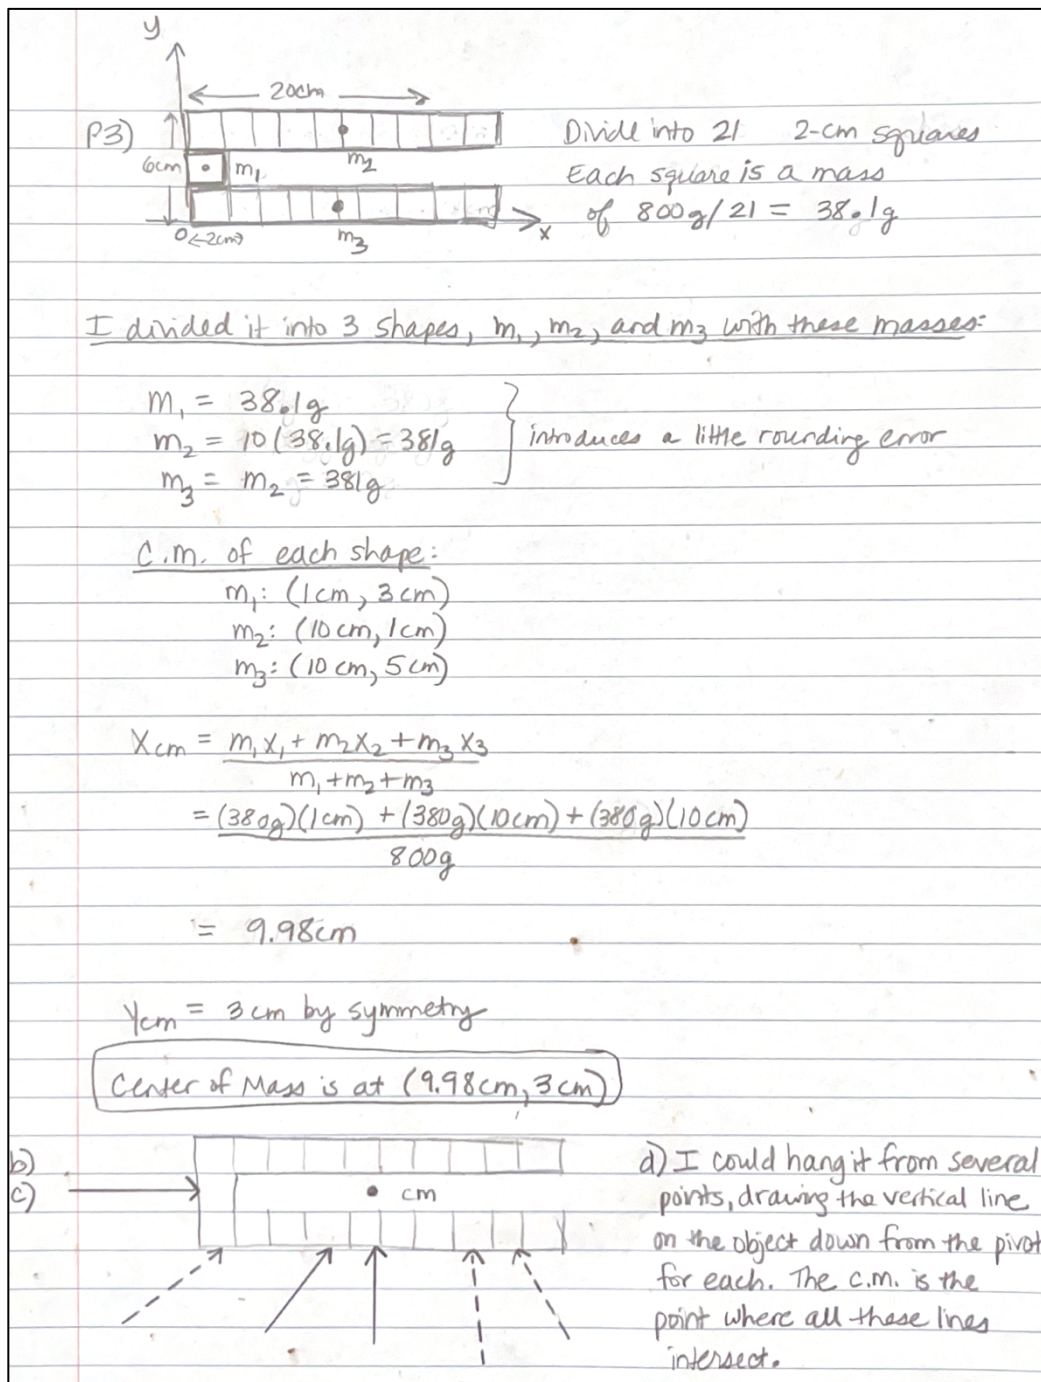 y
20cm
P3)
6cm
m₁
m₂
m₃
0
←2cm→
x
Divide into 21 2-cm squares
Each square is a mass
of 800g/21 = 38.1g
I divided it into 3 shapes, m₁, m₂, and m₃ with these masses:
m₁ = 38.1g
m₂ = 10(38.1g) = 381g
m₃ = m₂ = 381g
introduces a little rounding error
C.M. of each shape:
m₁: (1cm, 3cm)
m₂: (10cm, 1cm)
m₃: (10cm, 5cm)
Xcm = m₁x₁ + m₂x₂ + m₃x₃
m₁+m₂+m₃
= (380g)(1cm) + (380g)(10cm) + (380g)(10cm)
800g
= 9.98cm
Ycm = 3cm by symmetry
Center of Mass is at (9.98cm, 3cm)
b)
c)
cm
d) I could hang it from several
points, drawing the vertical line
on the object down from the pivot
for each. The c.m. is the
point where all these lines
intersect.